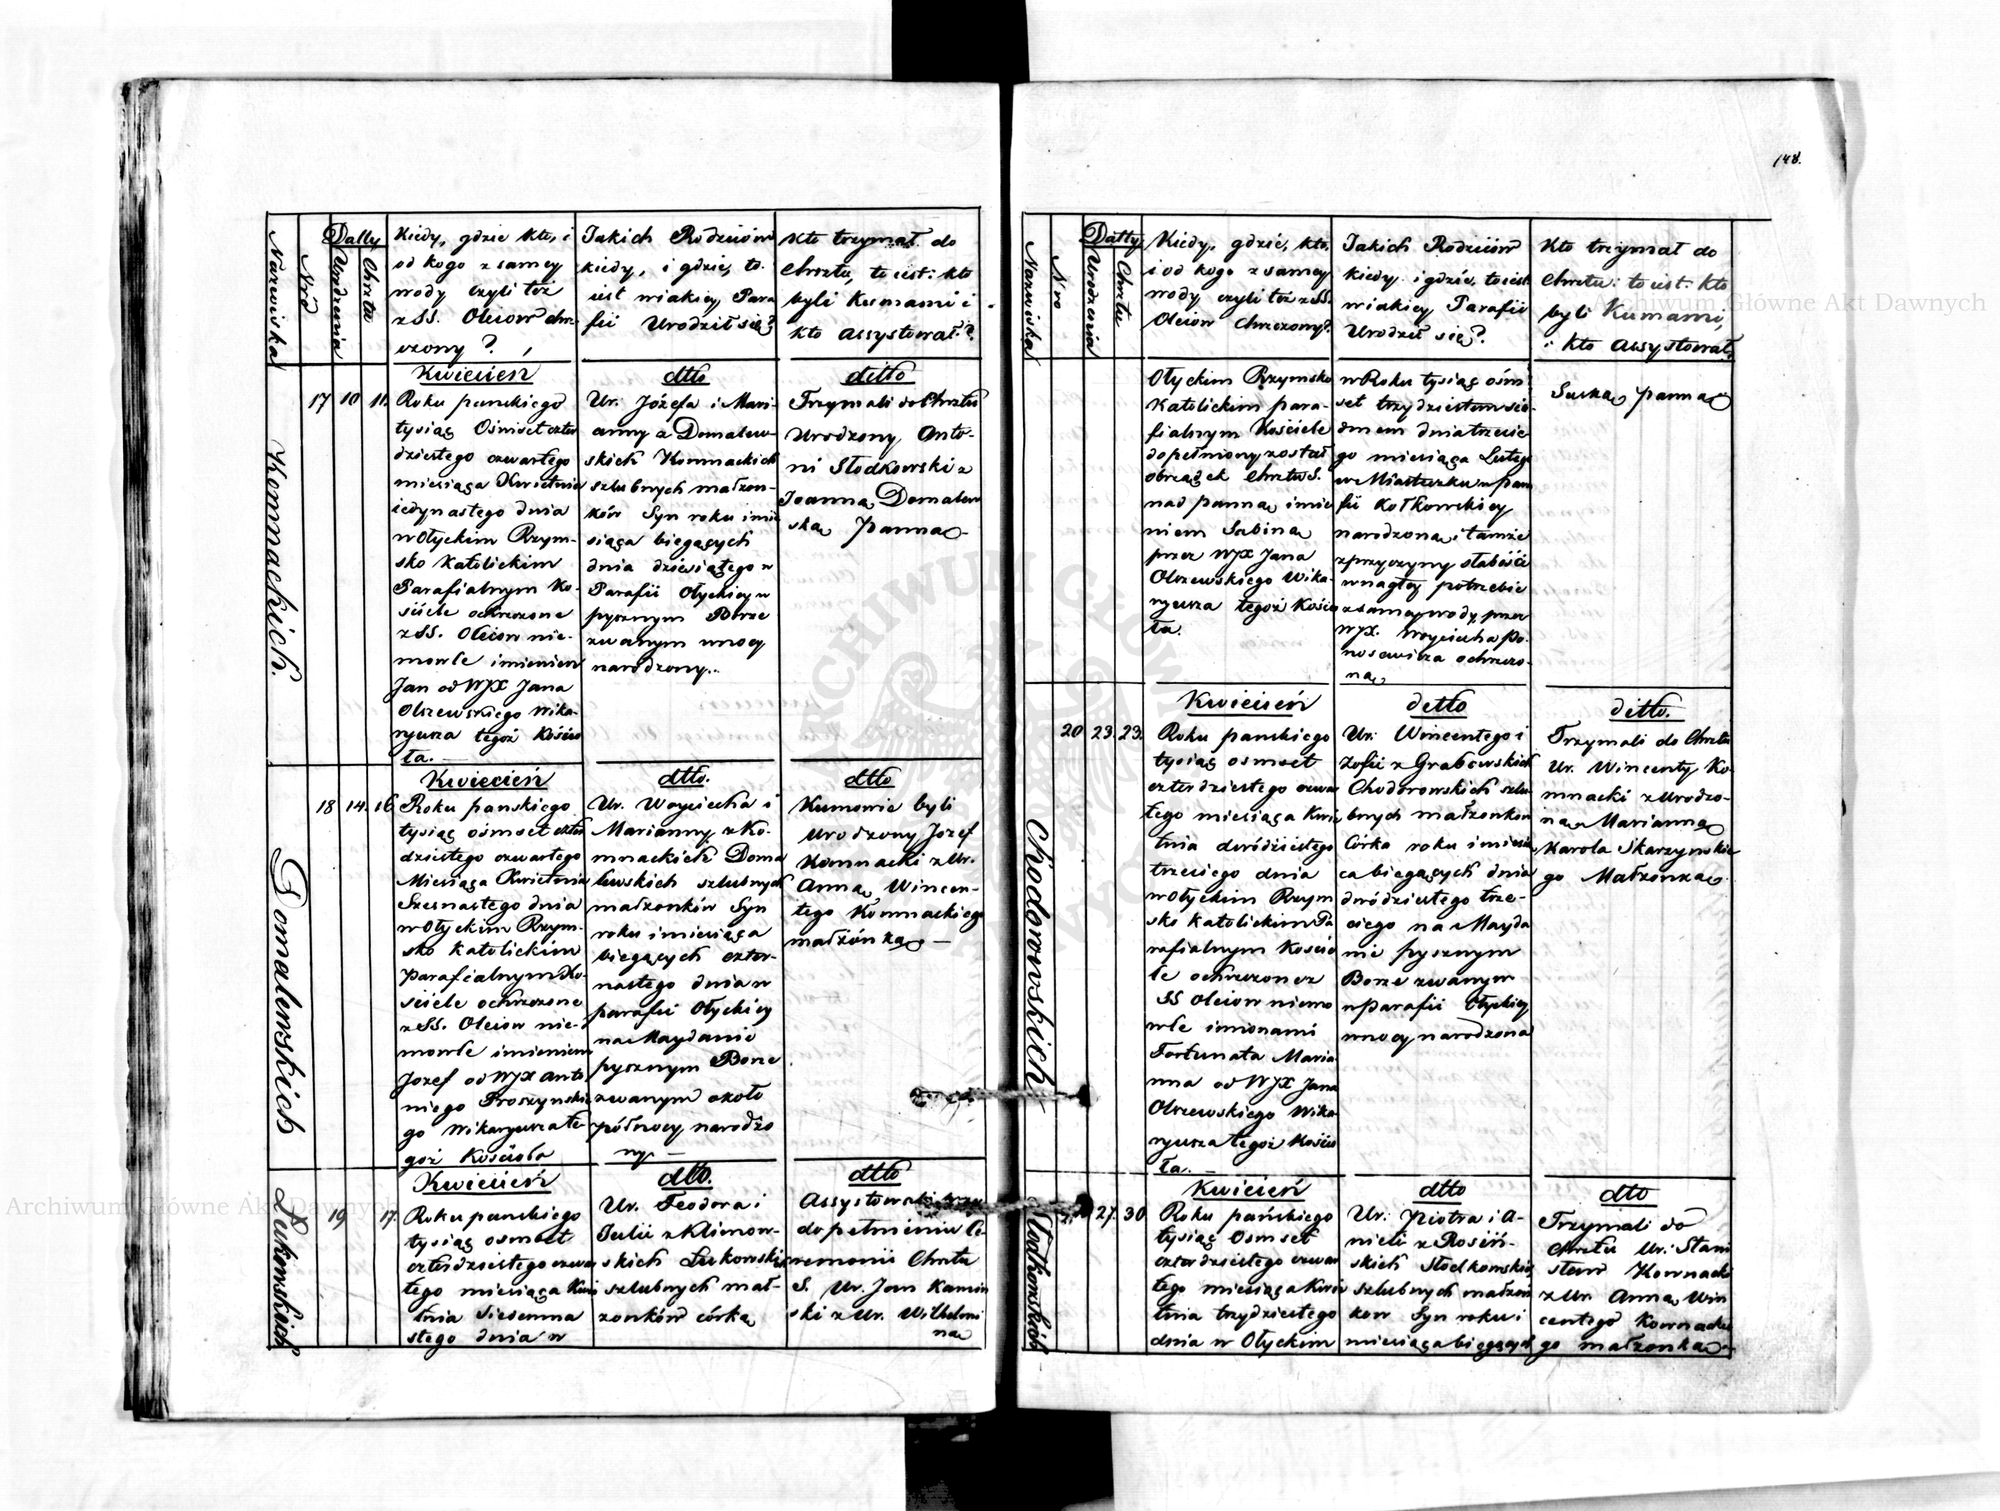 148.
Nazwiska
Nro
Datty
Urodzenia
Chrztu
Kiedy, gdzie kto, i
od kogo z samey
wody czyli też
z SS. Oleiow chrz-
czony?
Jakich Rodziców
kiedy, i gdzie, to
iest w iakiey Para
fii Urodził się?
Kto trzymał do
Chrztu, to iest: kto
byli Kumami i
kto assystował?
Kownackich.
17
10
11.
Kwiecień
Roku pańskiego
tysiąc Ośmset czter
dziestego czwartego
miesiąca Kwietnia
iedynastego dnia
w Ołyckim Rzym-
sko Katolickim
Parafialnym Ko-
ściele ochrzczone
z SS. Oleiow nie-
mowle imieniem
Jan od WJX Jana
Olszewskiego Wika-
ryusza tegoż Kościo
ła.
dtto
Ur. Józefa i Mari-
anny z Domalew-
skich Kownackich
szlubnych małżon-
ków Syn roku i mie
siąca bieżących
dnia dziesiątego w
Parafii Ołyckiey w
pysznym Borze
zwanym w nocy
narodzony.
ditto
Trzymali do Chrztu
Urodzony Anto-
ni Słodkowski z
Joanną Domalew
ską Panną
Domalewskich
18
14.
16
Kwiecień
Roku pańskiego
tysiąc ośmset czter
dziestego czwartego
Miesiąca Kwietnia
Szesnastego dnia
w Ołyckim Rzym-
sko Katolickim
Parafialnym Ko-
ściele ochrzczone
z SS. Oleiow nie-
mowle imieniem
Jozef od WJX Anto
niego Proszynskie
go Wikaryusza te
goż Kościoła
dtto.
Ur. Woyciecha i
Marianny z Ko-
wnackich Doma
lewskich szlubnych
małżonków Syn
roku i miesiąca
bieżących czter-
nastego dnia w
parafii Ołyckiey
na Maydanie
pysznym Borze
zwanym około
północy narodzo
ny. —
dtto
Kumowie byli
Urodzony Jozef
Kownacki z Ur.
Anną Wincen-
tego Kownackiego
małżonką —
Łukowskich
19
17.
Kwiecień
Roku pańskiego
tysiąc osmset
czterdziestego czwar
tego miesiąca Kwie
tnia siedemna
stego dnia w
dtto.
Ur. Teodora i
Julii z Klimow-
skich Łukowskich
szlubnych mał-
zonków córka
dtto
Assystowali przy
dopełnieniu Ce-
remonii Chrztu
S. Ur. Jan Kamin
ski z Ur. Wilhelmi
ną
Nazwiska
Nro
Datty
Urodzenia
Chrztu
Kiedy, gdzie, kto,
i od kogo z samey
wody czyli też z SS.
Oleiow chrzczony?
Jakich Rodziców
kiedy i gdzie, to iest
w iakiey Parafii
Urodził się?
Kto trzymał do
Chrztu: to iest: kto
byli Kumami,
i kto assystował
Ołyckim Rzymsko
Katolickim para-
fialnym Kościele
dopełniony został
obrządek Chrztu S.
nad panną imie
niem Sabina
przez WJX Jana
Olszewskiego Wika-
ryusza tegoż Kościo
ła.
w Roku tysiąc ośm
set trzydziestym sió-
dmem dnia trzecie
go miesiąca Lutego
w Miasteczku w para
fii Kołkowskiey
narodzona i tamże
z przyczyny słabości
w nagłey potrzebie
z samey wody, przez
WJX. Woyciecha Po-
nosewicza ochrzczo-
na,
Suską panną
Chodorowskich
20
23.
23.
Kwiecień
Roku pańskiego
tysiąc osmset
czterdziestego czwar
tego miesiąca Kwie
tnia dwódziestego
trzeciego dnia
w Ołyckim Rzym
sko Katolickim Pa
rafialnym Kościo
le ochrzczone z
SS Oleiow niemo
wle imionami
Fortunata Maria
nna od WJX Jana
Olszewskiego Wika-
ryusza tegoż Kościo
ła. —
detto
Ur: Wincentego i
Zofii z Grabowskich
Chodorowskich szlu
bnych małżonków
Córka roku i miesią
ca bieżących dnia
dwódziestego trze-
ciego na Mayda
nie pysznym
Borze zwanym
w Parafii Ołyckiey
w nocy narodzona
ditto.
Trzymali do Chrztu
Ur. Wincenty Ko-
wnacki z Urodzo-
ną Marianną
Karola Skarzynskie
go Małżonką.
Słotkowskich
27.
30
Kwicień
Roku pańskiego
tysiąc Osmset
czterdziestego czwar
tego miesiąca Kwie
tnia trzydziestego
dnia w Ołyckim
dtto
Ur: Piotra i A-
nieli z Rosiń-
skich Słodkowskich
szlubnych małżon
kow Syn roku i
miesiąca bieżących
dto
Trzymali do
Chrztu Ur: Stani
sław Kownacki
z Ur. Anną Win
centego Kownackie
go małżonką
Archiwum Główne Akt Dawnych
Archiwum Główne Akt Dawnych